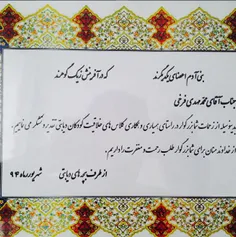 بنی آدم اعضای یکدیگرند
که در آفرینش ز یک گوهرند
جناب آقای محمد مهدی فرخی
بدینوسیله از زحمات شما بزرگوار در راستای همیاری و همکاری کلاس های خلاقیت کودکان دیابتی تقدیر و تشکر می نماییم.
از خداوند منان برای شما بزرگوار طلب رحمت و مغفرت را داریم.
از طرف بچه های دیابتی
شهریور ماه ۹۴